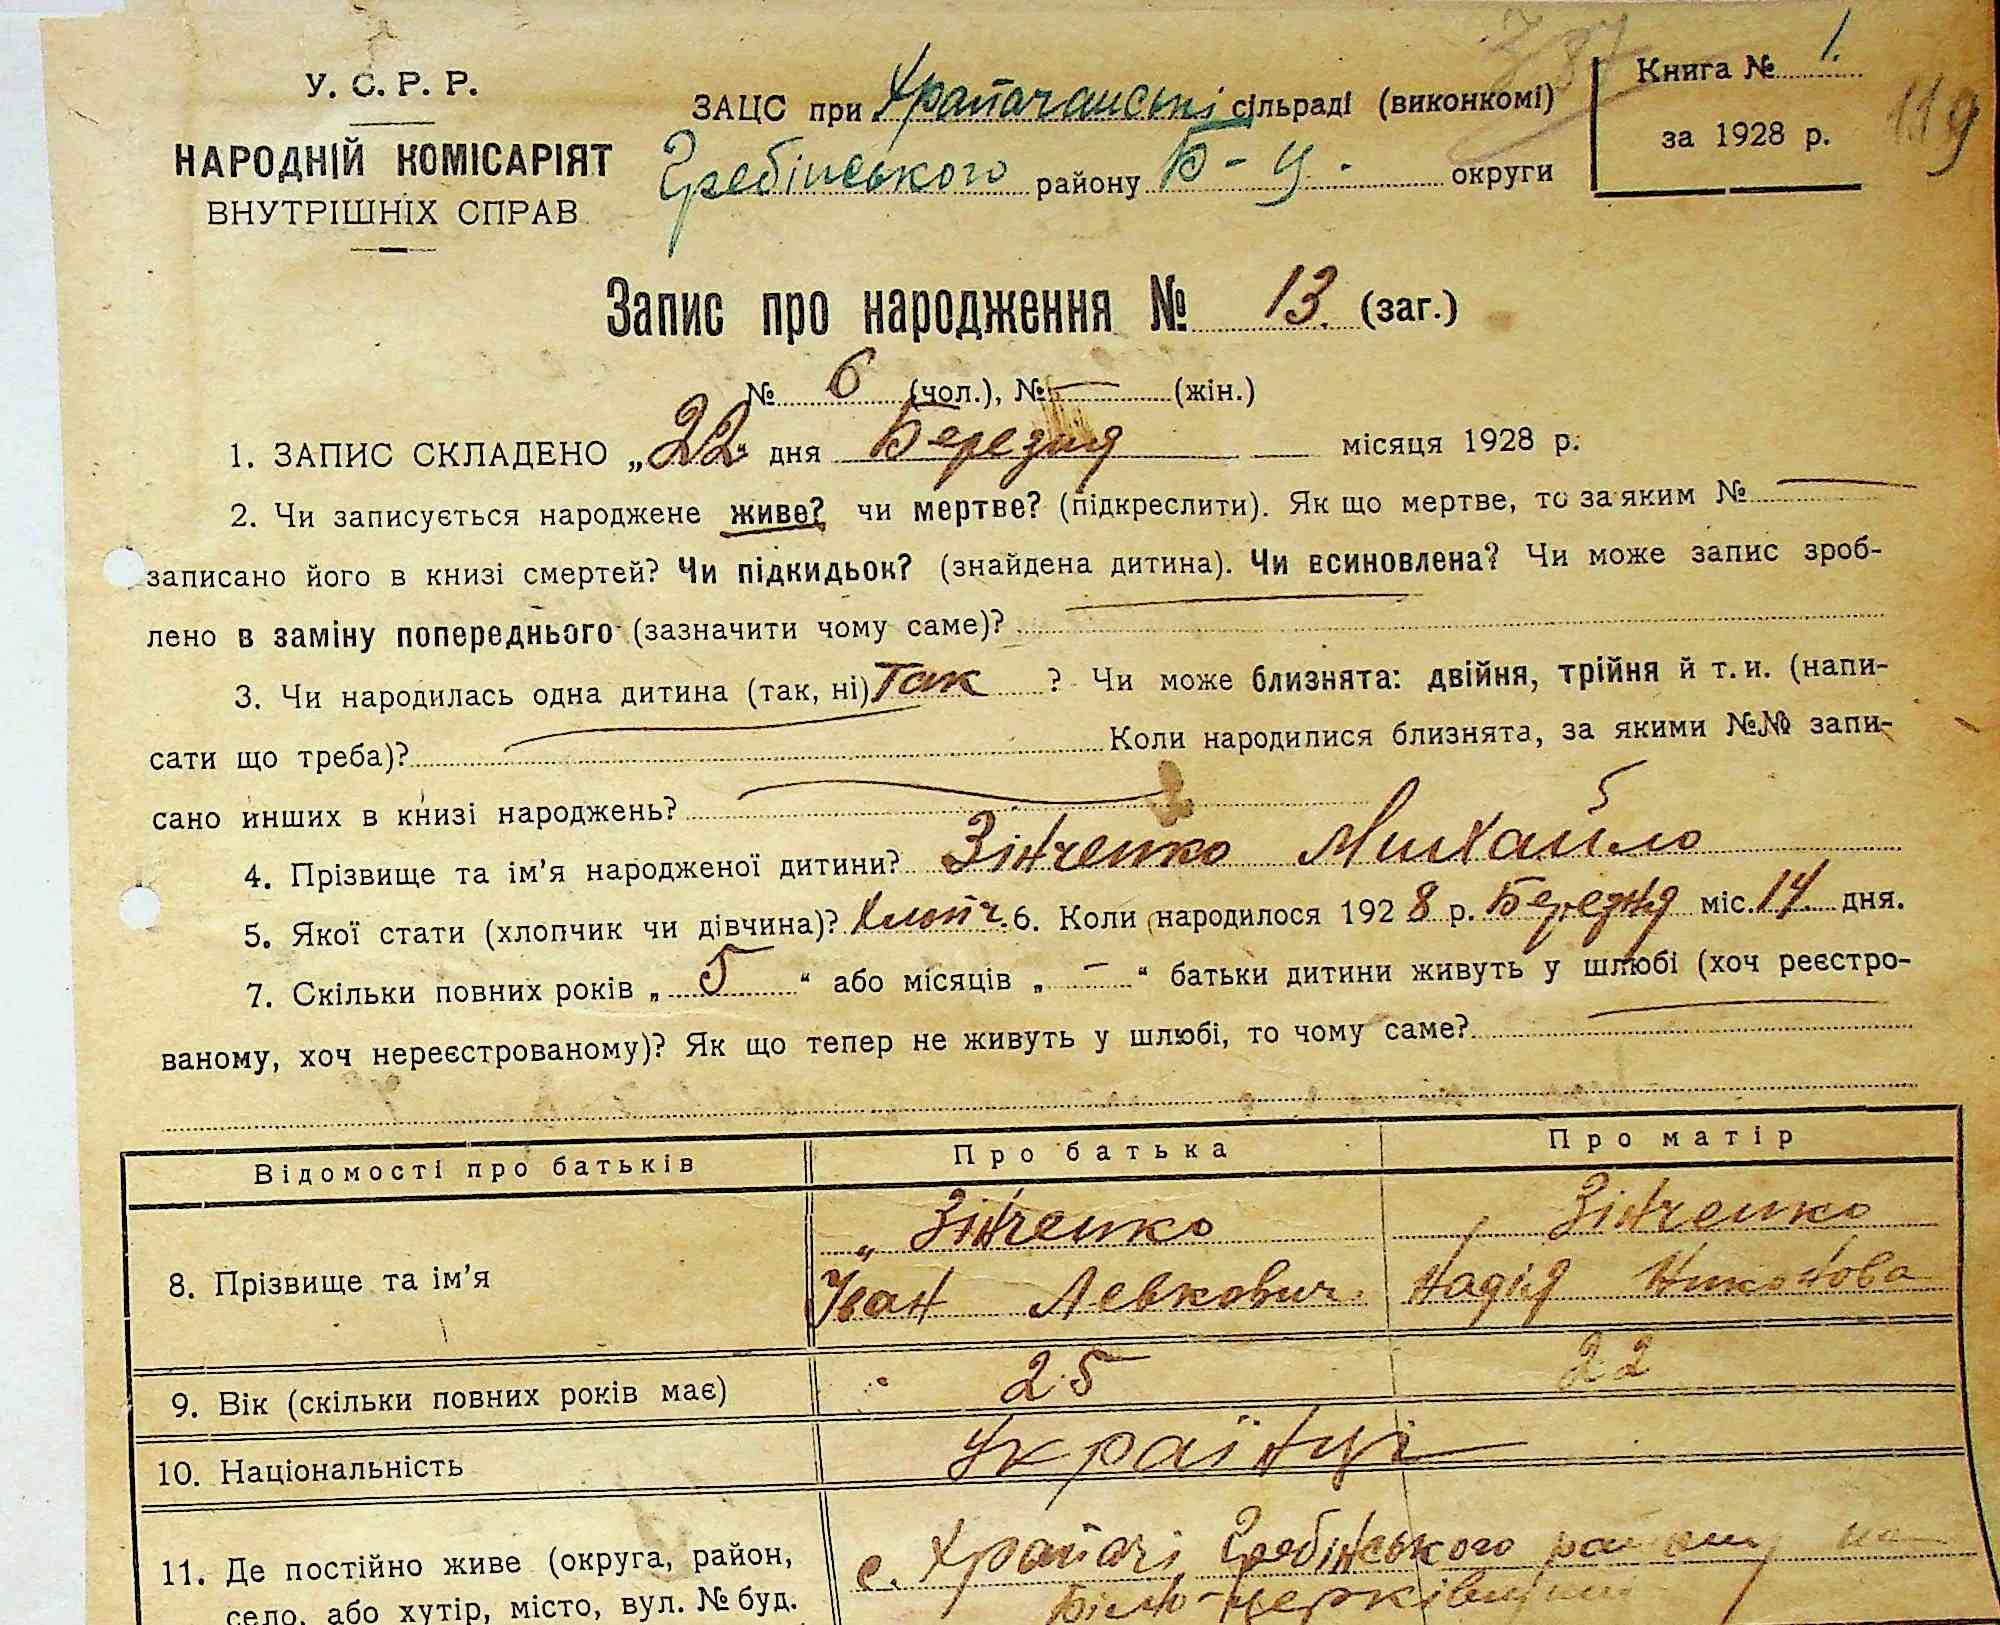 У. С. Р. Р.
НАРОДНІЙ КОМІСАРІЯТ
ВНУТРІШНІХ СПРАВ
ЗАЦС при Храпачанські сільраді (виконкомі)
Гребінського району Б-Ц. округи
Книга № 1.
за 1928 р.
119
Запис про народження № 13. (заг.)
№ 6 (чол.), № — (жін.)
1. ЗАПИС СКЛАДЕНО „22“ дня Березня — місяця 1928 р.
2. Чи записується народжене живе? чи мертве? (підкреслити). Як що мертве, то за яким № —
записано його в книзі смертей? Чи підкидьок? (знайдена дитина). Чи всиновлена? Чи може запис зроб-
лено в заміну попереднього (зазначити чому саме)?
3. Чи народилась одна дитина (так, ні) Так ? Чи може близнята: двійня, трійня й т. и. (напи-
сати що треба)? Коли народилися близнята, за якими №№ запи-
сано инших в книзі народжень?
4. Прізвище та ім'я народженої дитини? Зінченко Михайло
5. Якої стати (хлопчик чи дівчина)? Хлопч. 6. Коли народилося 1928 р. Березня міс. 14. дня.
7. Скільки повних років „ 5 “ або місяців „ — “ батьки дитини живуть у шлюбі (хоч реєстро-
ваному, хоч нереєстрованому)? Як що тепер не живуть у шлюбі, то чому саме?
Відомості про батьків Про батька Про матір
8. Прізвище та ім'я
„ Зінченко
Іван Левкович.
Зінченко
Надія Никонова
9. Вік (скільки повних років має) 25 22
10. Національність Українці
11. Де постійно живе (округа, район,
село, або хутір, місто, вул. № буд.
с. Храпачі Гребінського району на
Біло-церківщині